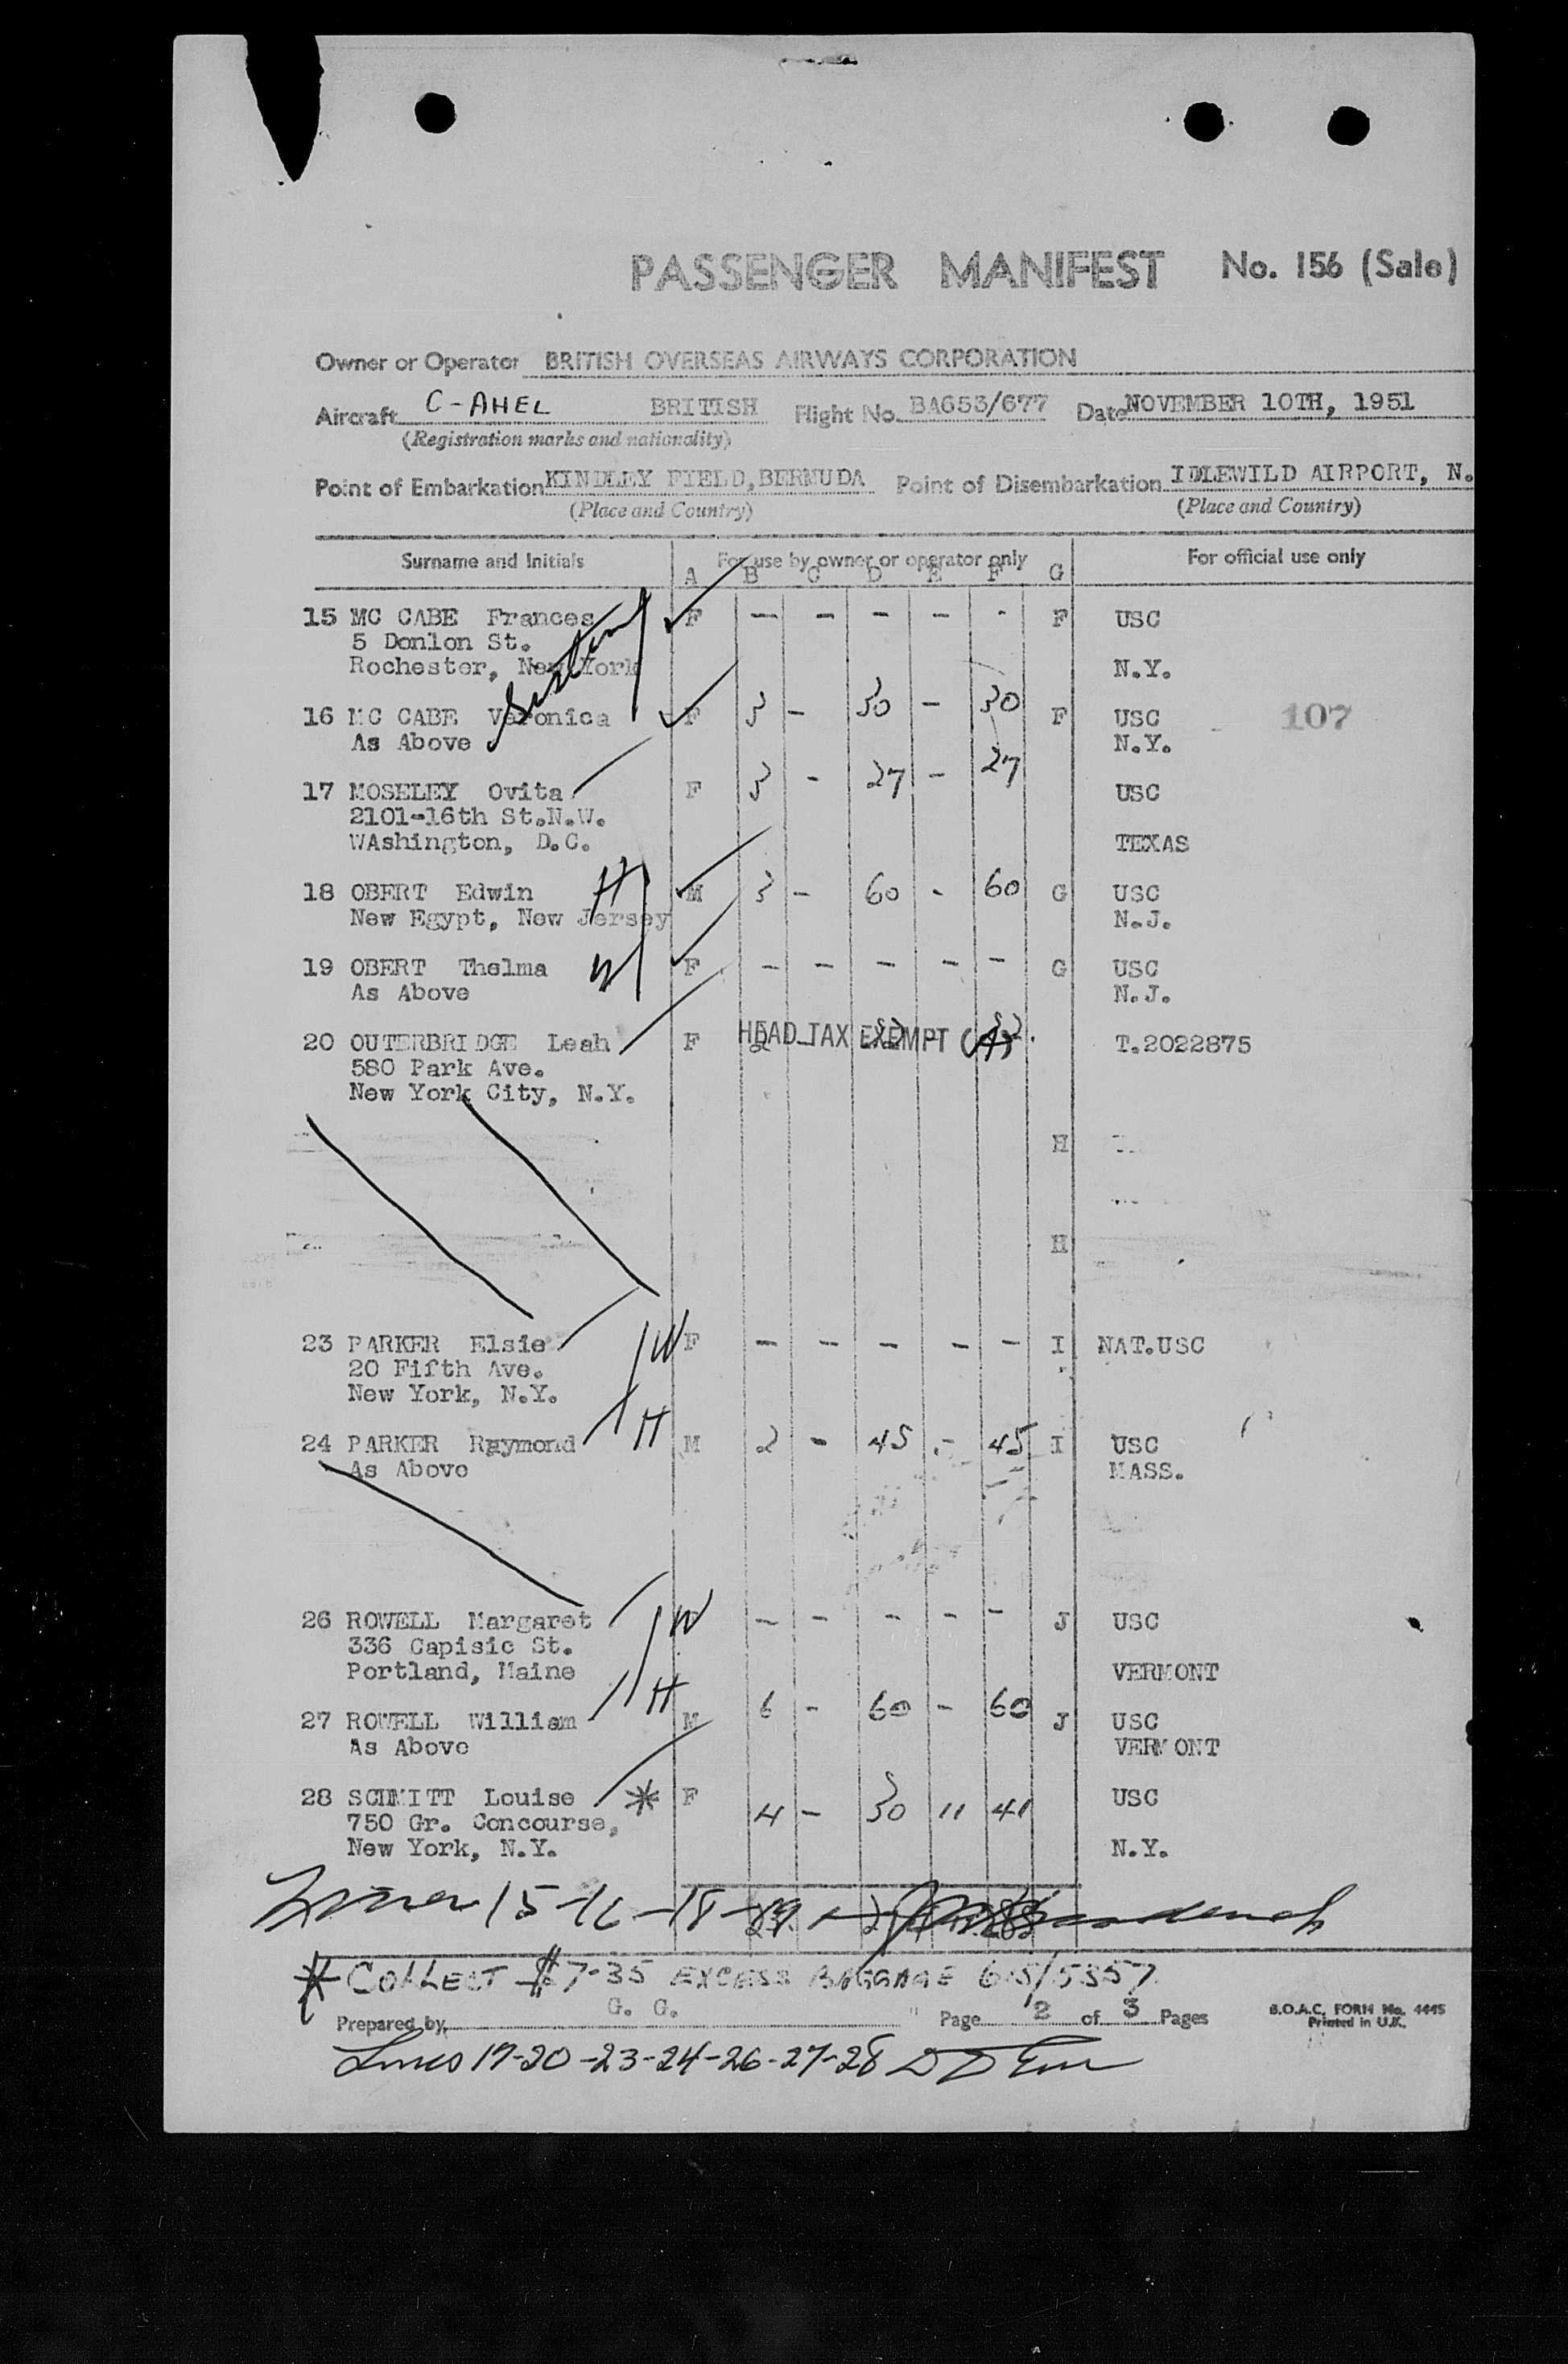 PASSENGER MANIFEST No. 156 (Sale)
Owner or Operator BRITISH OVERSEAS AIRWAYS CORPORATION
Aircraft C-AHEL BRITISH Flight No. BA653/677 Date NOVEMBER 10TH, 1951
(Registration marks and nationality)
Point of Embarkation KINDLEY FIELD, BERMUDA Point of Disembarkation IDLEWILD AIRPORT, N.
(Place and Country) (Place and Country)
Surname and Initials For use by owner or operator only For official use only
A B C D E F G
15 MC CABE Frances F – – – – - F USC
5 Donlon St.
Rochester, New York N.Y.
16 MC CABE Veronica F 3 – 30 – 30 F USC 107
As Above N.Y.
17 MOSELEY Ovita F 3 - 27 – 27 USC
2101-16th St.N.W.
WAshington, D.C. TEXAS
18 OBERT Edwin H M 3 – 60 - 60 G USC
New Egypt, New Jersey N.J.
19 OBERT Thelma W F – – – – – G USC
As Above N.J.
20 OUTERBRIDGE Leah F HEAD TAX EXEMPT T.2022875
580 Park Ave.
New York City, N.Y.
H
H
23 PARKER Elsie W F – – – – – I NAT.USC
20 Fifth Ave.
New York, N.Y.
24 PARKER Raymond H M 2 - 45 - 45 I USC
As Above MASS.
26 ROWELL Margaret W – – – – – J USC
336 Capisic St.
Portland, Maine VERMONT
27 ROWELL William H M 6 - 60 – 60 J USC
As Above VERMONT
28 SCHMITT Louise * F 4 – 30 11 41 USC
750 Gr. Concourse,
New York, N.Y. N.Y.
15-16-18-19
* COLLECT $7-35 EXCESS BAGGAGE 615/5357
Prepared by G. G. Page 2 of 3 Pages B.O.A.C. FORM No. 4445
Printed in U.K.
Lines 17-20-23-24-26-27-28